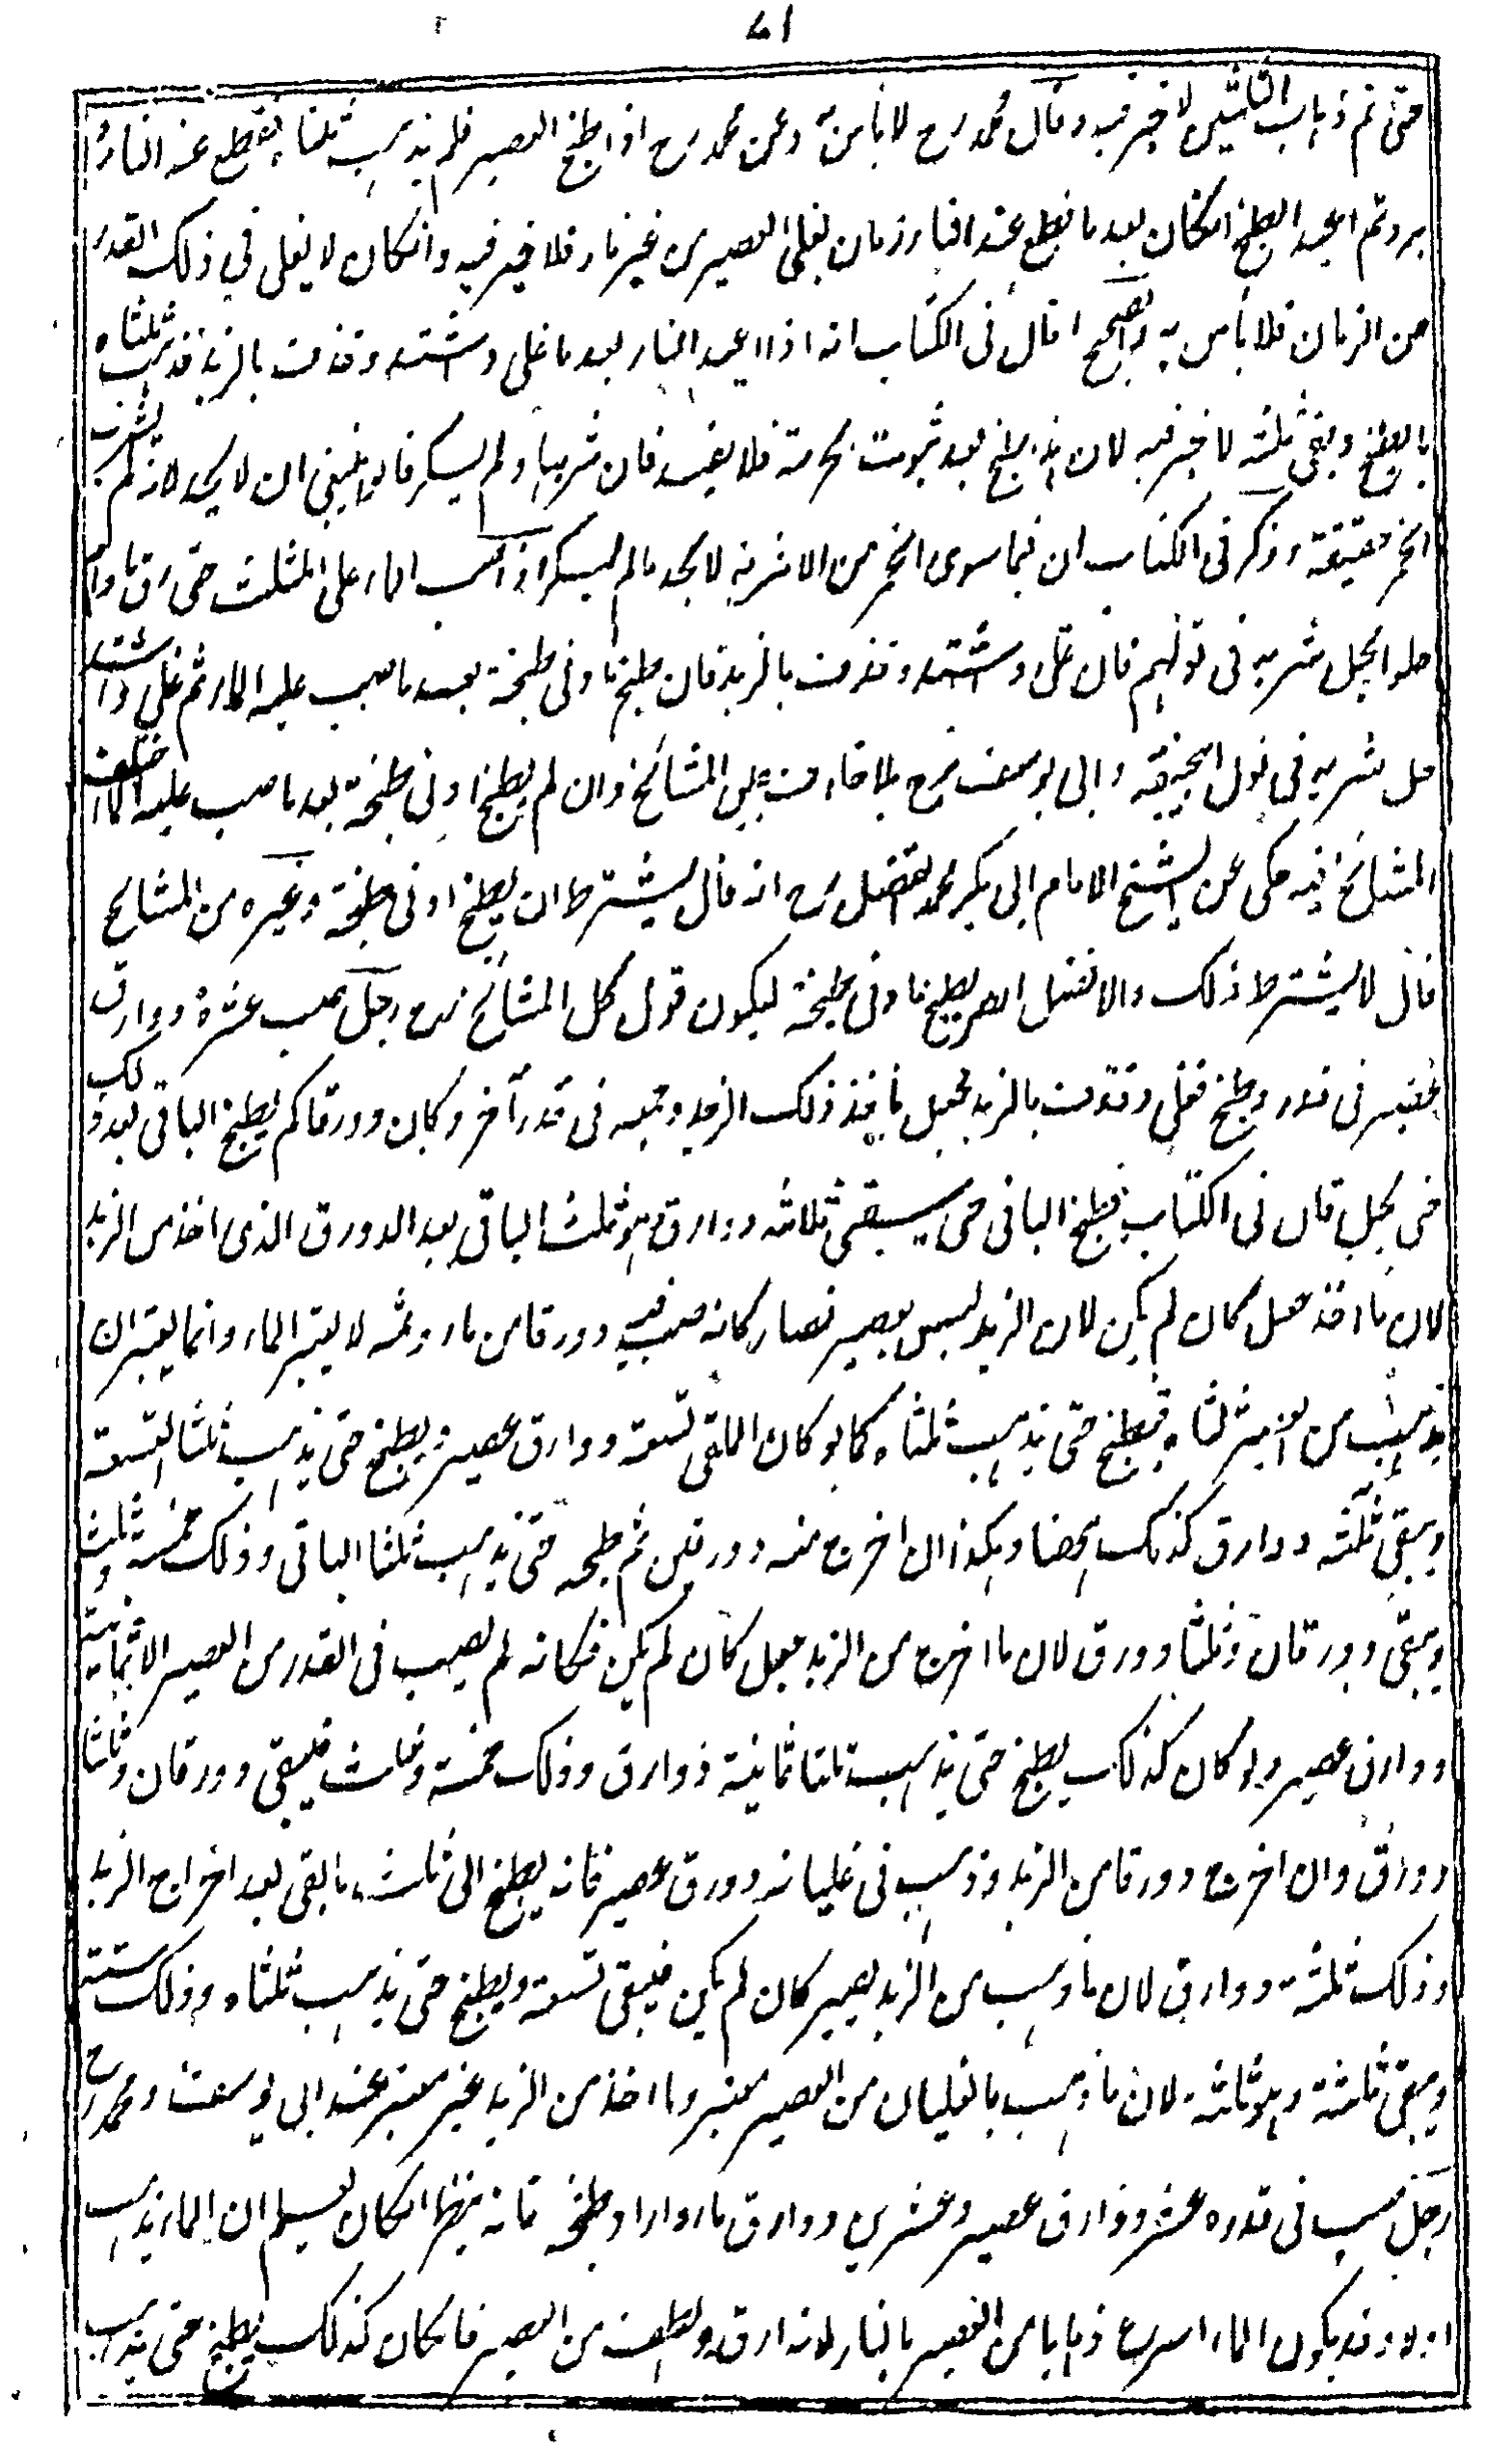 ٤١
حتى تم ذهاب الثلثين لا خير فيه وقال محمد رح لا بأس به وعن محمد رح اذا طبخ العصير فلم يذهب ثلثاه فقطع عنه النار و
برد ثم اعيد الطبخ انكان بعد ما قطع عنه النار زمان يغلي العصير من غير نار فلا خير فيه وانكان لا يغلي في ذلك القدر
من الزمان فلا بأس به والصحيح ما قال في الكتاب انه اذا اعيد النار بعد ما غلى واشتد وقذف بالزبد فذهب ثلثاه
بالطبخ وبقي ثلثه لا خير فيه لان هذا طبخ بعد ثبوت الحرمة فلا يفيد فان شربها ولم يسكر قالوا ينبغي ان لا يحد لانه لم يشرب
الخمر حقيقة وذكر في الكتاب ان فيما سوى الخمر من الاشربة لا يحد ما لم يسكر اذا صب الماء على المثلث حتى رق وما دام
حلوا يحل شربه في قولهم فان غلى واشتد وقذف بالزبد فان طبخ ادنى طبخة بعد ما صب عليه الماء ثم غلى واشتد
حل شربه في قول ابيحنيفة وابي يوسف رح بلا خلاف بين المشائخ وان لم يطبخ ادنى طبخة بعد ما صب عليه الماء اختلف
المشائخ فيه حكى عن الشيخ الامام ابي بكر محمد بن الفضل رح انه قال يشترط ان يطبخ ادنى طبخة وغيره من المشائخ
قال لا يشترط ذلك والافضل ان يطبخ ادنى طبخة ليكون قول كل المشائخ رح رجل صب عشرة دوارق
عصير في قدر وطبخ فغلى وقذف بالزبد فجعل يأخذ ذلك الزبد وجمعه في قدر آخر وكان دورقا كم يطبخ الباقي بعد ذلك
حتى يحل قال في الكتاب يطبخ الباقي حتى يبقى ثلاثة دوارق هو ثلث الباقي بعد الدورق الذي اخذ من الزبد
لان ما اخذ جعل كان لم يكن لان الزبد ليس بعصير فصار كانه صب فيه دورقا من ماء وثمه لا يعتبر الماء وانما يعتبر ان
يذهب من العصير ثلثاه فيطبخ حتى يذهب ثلثاه كما لو كان الملقى تسعة دوارق عصير ويطبخ حتى يذهب ثلثا التسعة
ويبقى ثلثه دوارق كذلك ههنا وهكذا ان اخرج منه دورقين ثم طبخه حتى يذهب ثلثا الباقي وذلك خمسة وثلث
ويبقى دورقان وثلثا دورق لان ما اخرج من الزبد جعل كان لم يكن فكانه لم يصب في القدر من العصير الا ثمانية
دوارق عصير ولو كان كذلك يطبخ حتى يذهب ثلثا ثمانية دوارق وذلك خمسة وثلث فيبقى دورقان وثلثا
دورق وان اخرج دورقا من الزبد وذهب في غليانه دورق عصير فانه يطبخ الى ثلث ما بقي بعد اخراج الزبد
وذلك ثلثة دوارق لان ما ذهب من الزبد يصير كان لم يكن فيبقى تسعة ويطبخ حتى يذهب ثلثاه وذلك ستة
ويبقى ثلثة وهو ثلثه لان ما ذهب بالغليان من العصير معتبر وما اخذ من الزبد غير معتبر عند ابي يوسف ومحمد رح
رجل صب في قدره عشر دوارق عصير وعشرين دوارق ماء واراد طبخه فانه ينظر انكان يعلم ان الماء يذهب
اولا وقد يكون الماء اسرع ذهابا من العصير بالنار لانه ارق والطف من العصير فانكان كذلك يطبخ حتى يذهب